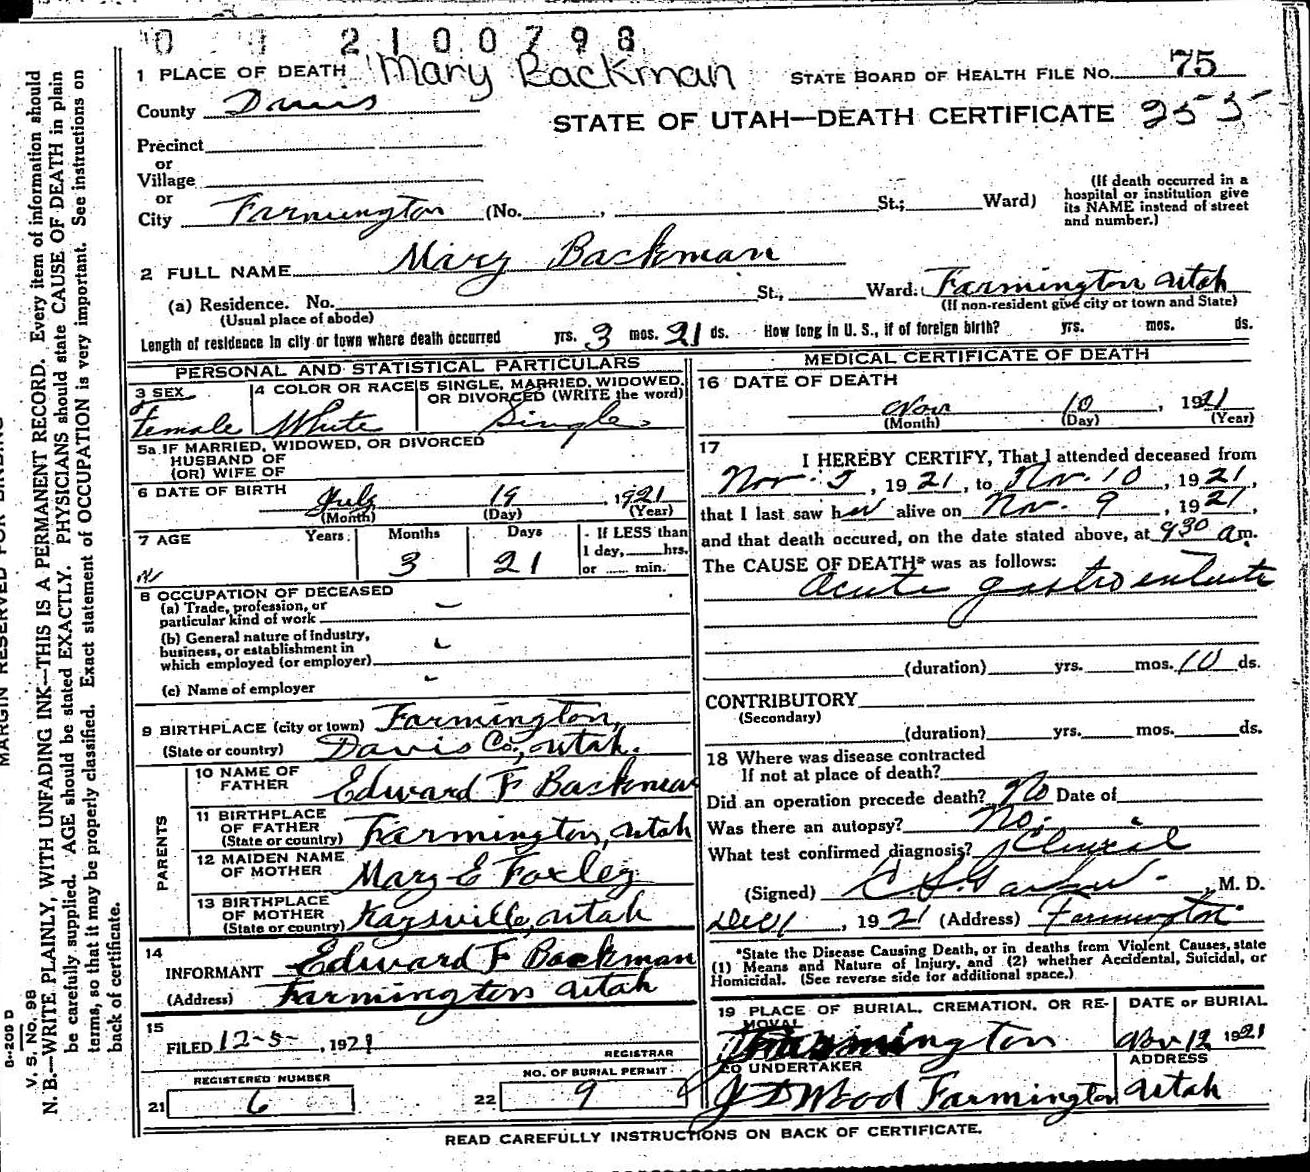 2100798
1 PLACE OF DEATH Mary Backman STATE BOARD OF HEALTH FILE NO. 75
County Davis
STATE OF UTAH—DEATH CERTIFICATE 255
Precinct
or
Village
or
City Farmington (No. , St.; Ward)
(If death occurred in a
hospital or institution give
its NAME instead of street
and number.)
2 FULL NAME Mary Backman
(a) Residence. No. St., Ward. Farmington Utah
(Usual place of abode) (If non-resident give city or town and State)
Length of residence in city or town where death occurred yrs. 3 mos. 21 ds. How long in U. S., if of foreign birth? yrs. mos. ds.
PERSONAL AND STATISTICAL PARTICULARS
3 SEX Female
4 COLOR OR RACE White
5 SINGLE, MARRIED, WIDOWED,
OR DIVORCED (WRITE the word)
Single
5a IF MARRIED, WIDOWED, OR DIVORCED
HUSBAND OF
(OR) WIFE OF
6 DATE OF BIRTH July 19, 1921
(Month) (Day) (Year)
7 AGE Years Months Days If LESS than
1 day, hrs.
or min.
3 21
8 OCCUPATION OF DECEASED
(a) Trade, profession, or
particular kind of work
(b) General nature of industry,
business, or establishment in
which employed (or employer)
(c) Name of employer
9 BIRTHPLACE (city or town) Farmington,
(State or country) Davis Co., Utah.
PARENTS
10 NAME OF
FATHER Edward F Backman
11 BIRTHPLACE
OF FATHER
(State or country) Farmington, Utah
12 MAIDEN NAME
OF MOTHER Mary E Foxley
13 BIRTHPLACE
OF MOTHER
(State or country) Kaysville, Utah
14
INFORMANT Edward F Backman
(Address) Farmington Utah
15
FILED 12-5-, 1921
REGISTRAR
REGISTERED NUMBER
21 6
NO. OF BURIAL PERMIT
22 9
MEDICAL CERTIFICATE OF DEATH
16 DATE OF DEATH
Nov 10, 1921
(Month) (Day) (Year)
17
I HEREBY CERTIFY, That I attended deceased from
Nov. 5, 1921, to Nov. 10, 1921,
that I last saw her alive on Nov. 9, 1921,
and that death occured, on the date stated above, at 930 am.
The CAUSE OF DEATH* was as follows:
Acute gastro
(duration) yrs. mos. 10 ds.
CONTRIBUTORY
(Secondary)
(duration) yrs. mos. ds.
18 Where was disease contracted
If not at place of death?
Did an operation precede death? No Date of
Was there an autopsy? No.
What test confirmed diagnosis? Clinical
(Signed) M. D.
Dec 1, 1921 (Address) Farmington
*State the Disease Causing Death, or in deaths from Violent Causes, state
(1) Means and Nature of Injury, and (2) whether Accidental, Suicidal, or
Homicidal. (See reverse side for additional space.)
19 PLACE OF BURIAL, CREMATION, OR RE-
MOVAL
Farmington
DATE OF BURIAL
Nov 12 1921
20 UNDERTAKER
J D Wood Farmington
ADDRESS
Utah
READ CAREFULLY INSTRUCTIONS ON BACK OF CERTIFICATE.
MARGIN RESERVED FOR BINDING
B-209 D
V. S. NO. 98
N. B.—WRITE PLAINLY, WITH UNFADING INK—THIS IS A PERMANENT RECORD. Every item of information should
be carefully supplied. AGE should be stated EXACTLY. PHYSICIANS should state CAUSE OF DEATH in plain
terms, so that it may be properly classified. Exact statement of OCCUPATION is very important. See instructions on
back of certificate.